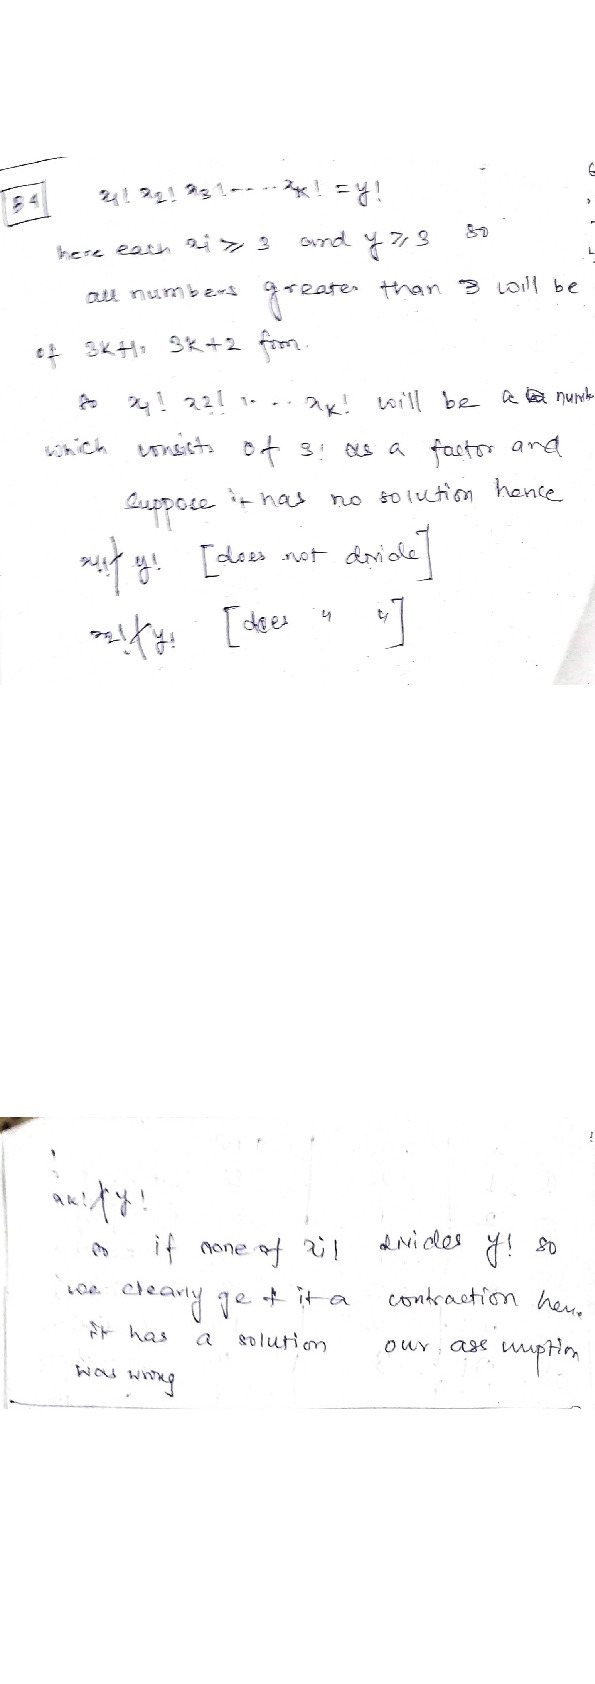 B4
x1! x2! x3! ---- xk! = y!
here each xi ≥ 3 and y ≥ 3 so
all numbers greater than 3 will be
of 3k+1, 3k+2 form.
so x1! x2! ... xk! will be a
which consists of 3! as a factor and
suppose it has no solution hence
x1! ∤ y! [does not divide]
x2! ∤ y! [does " "]
xk! ∤ y!
so if none of xi! divides y! so
we clearly get it a contraction
it has a solution our assumption
was wrong